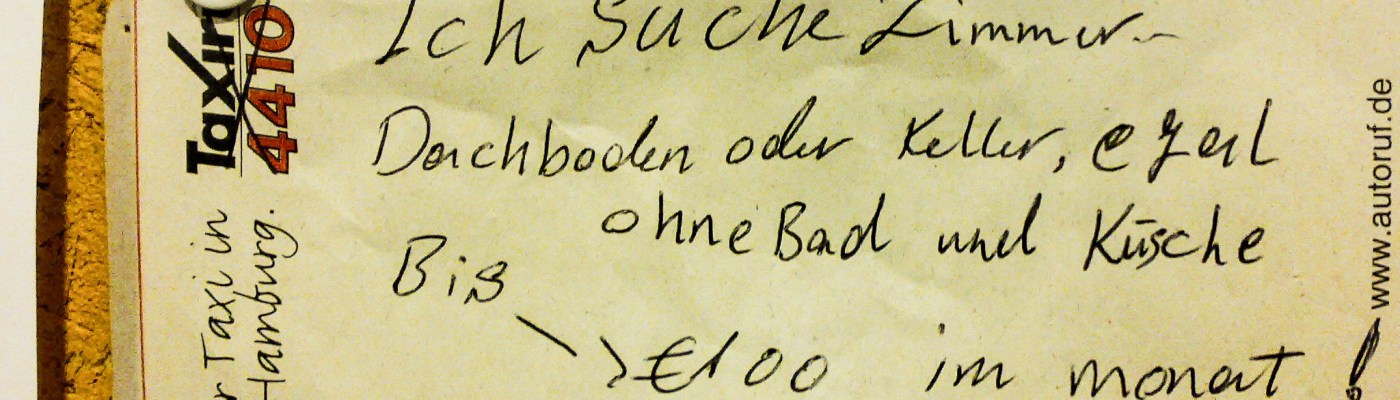 Ich suche Zimmer..
Dachboden oder Keller, egal
ohne Bad und Küsche
Biß
€100 im monat !
Taxi
4410
r Taxi in
Hamburg.
www.autoruf.de